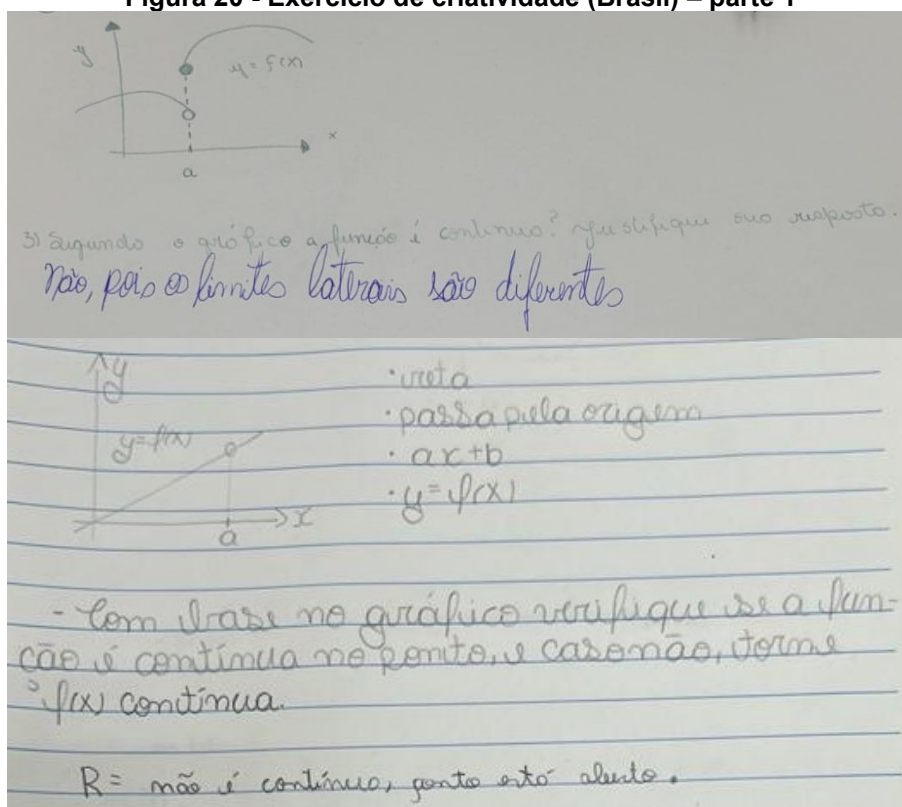 Figura 20 - Exercício de criatividade (Brasil) – parte 1
y
y = f(x)
x
a
3) Segundo o gráfico a função é continua? Justifique sua resposta.
Não, pois os limites laterais são diferentes
y
y=f(x)
x
a
·reta
·passa pela origem
·ax+b
·y=f(x)
- Com base no gráfico verifique se a fun-
ção é contínua no ponto, e caso não, torne
f(x) contínua.
R= não é contínuo, ponto está aberto.